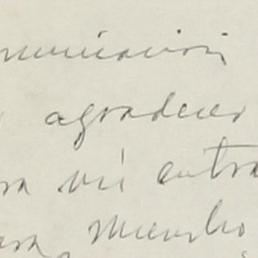 municación
agradecer
ra mi entra
ara mucho